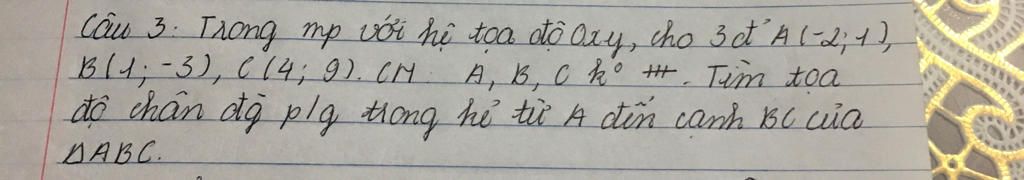 Câu 3: Trong mp với hệ tọa độ Oxy, cho 3 đ' A(-2; 1),
B(1; -3), C(4; 9). CM A, B, C k° +++. Tìm tọa
độ chân đg p/g trong kẻ từ A đến cạnh BC của
ΔABC.